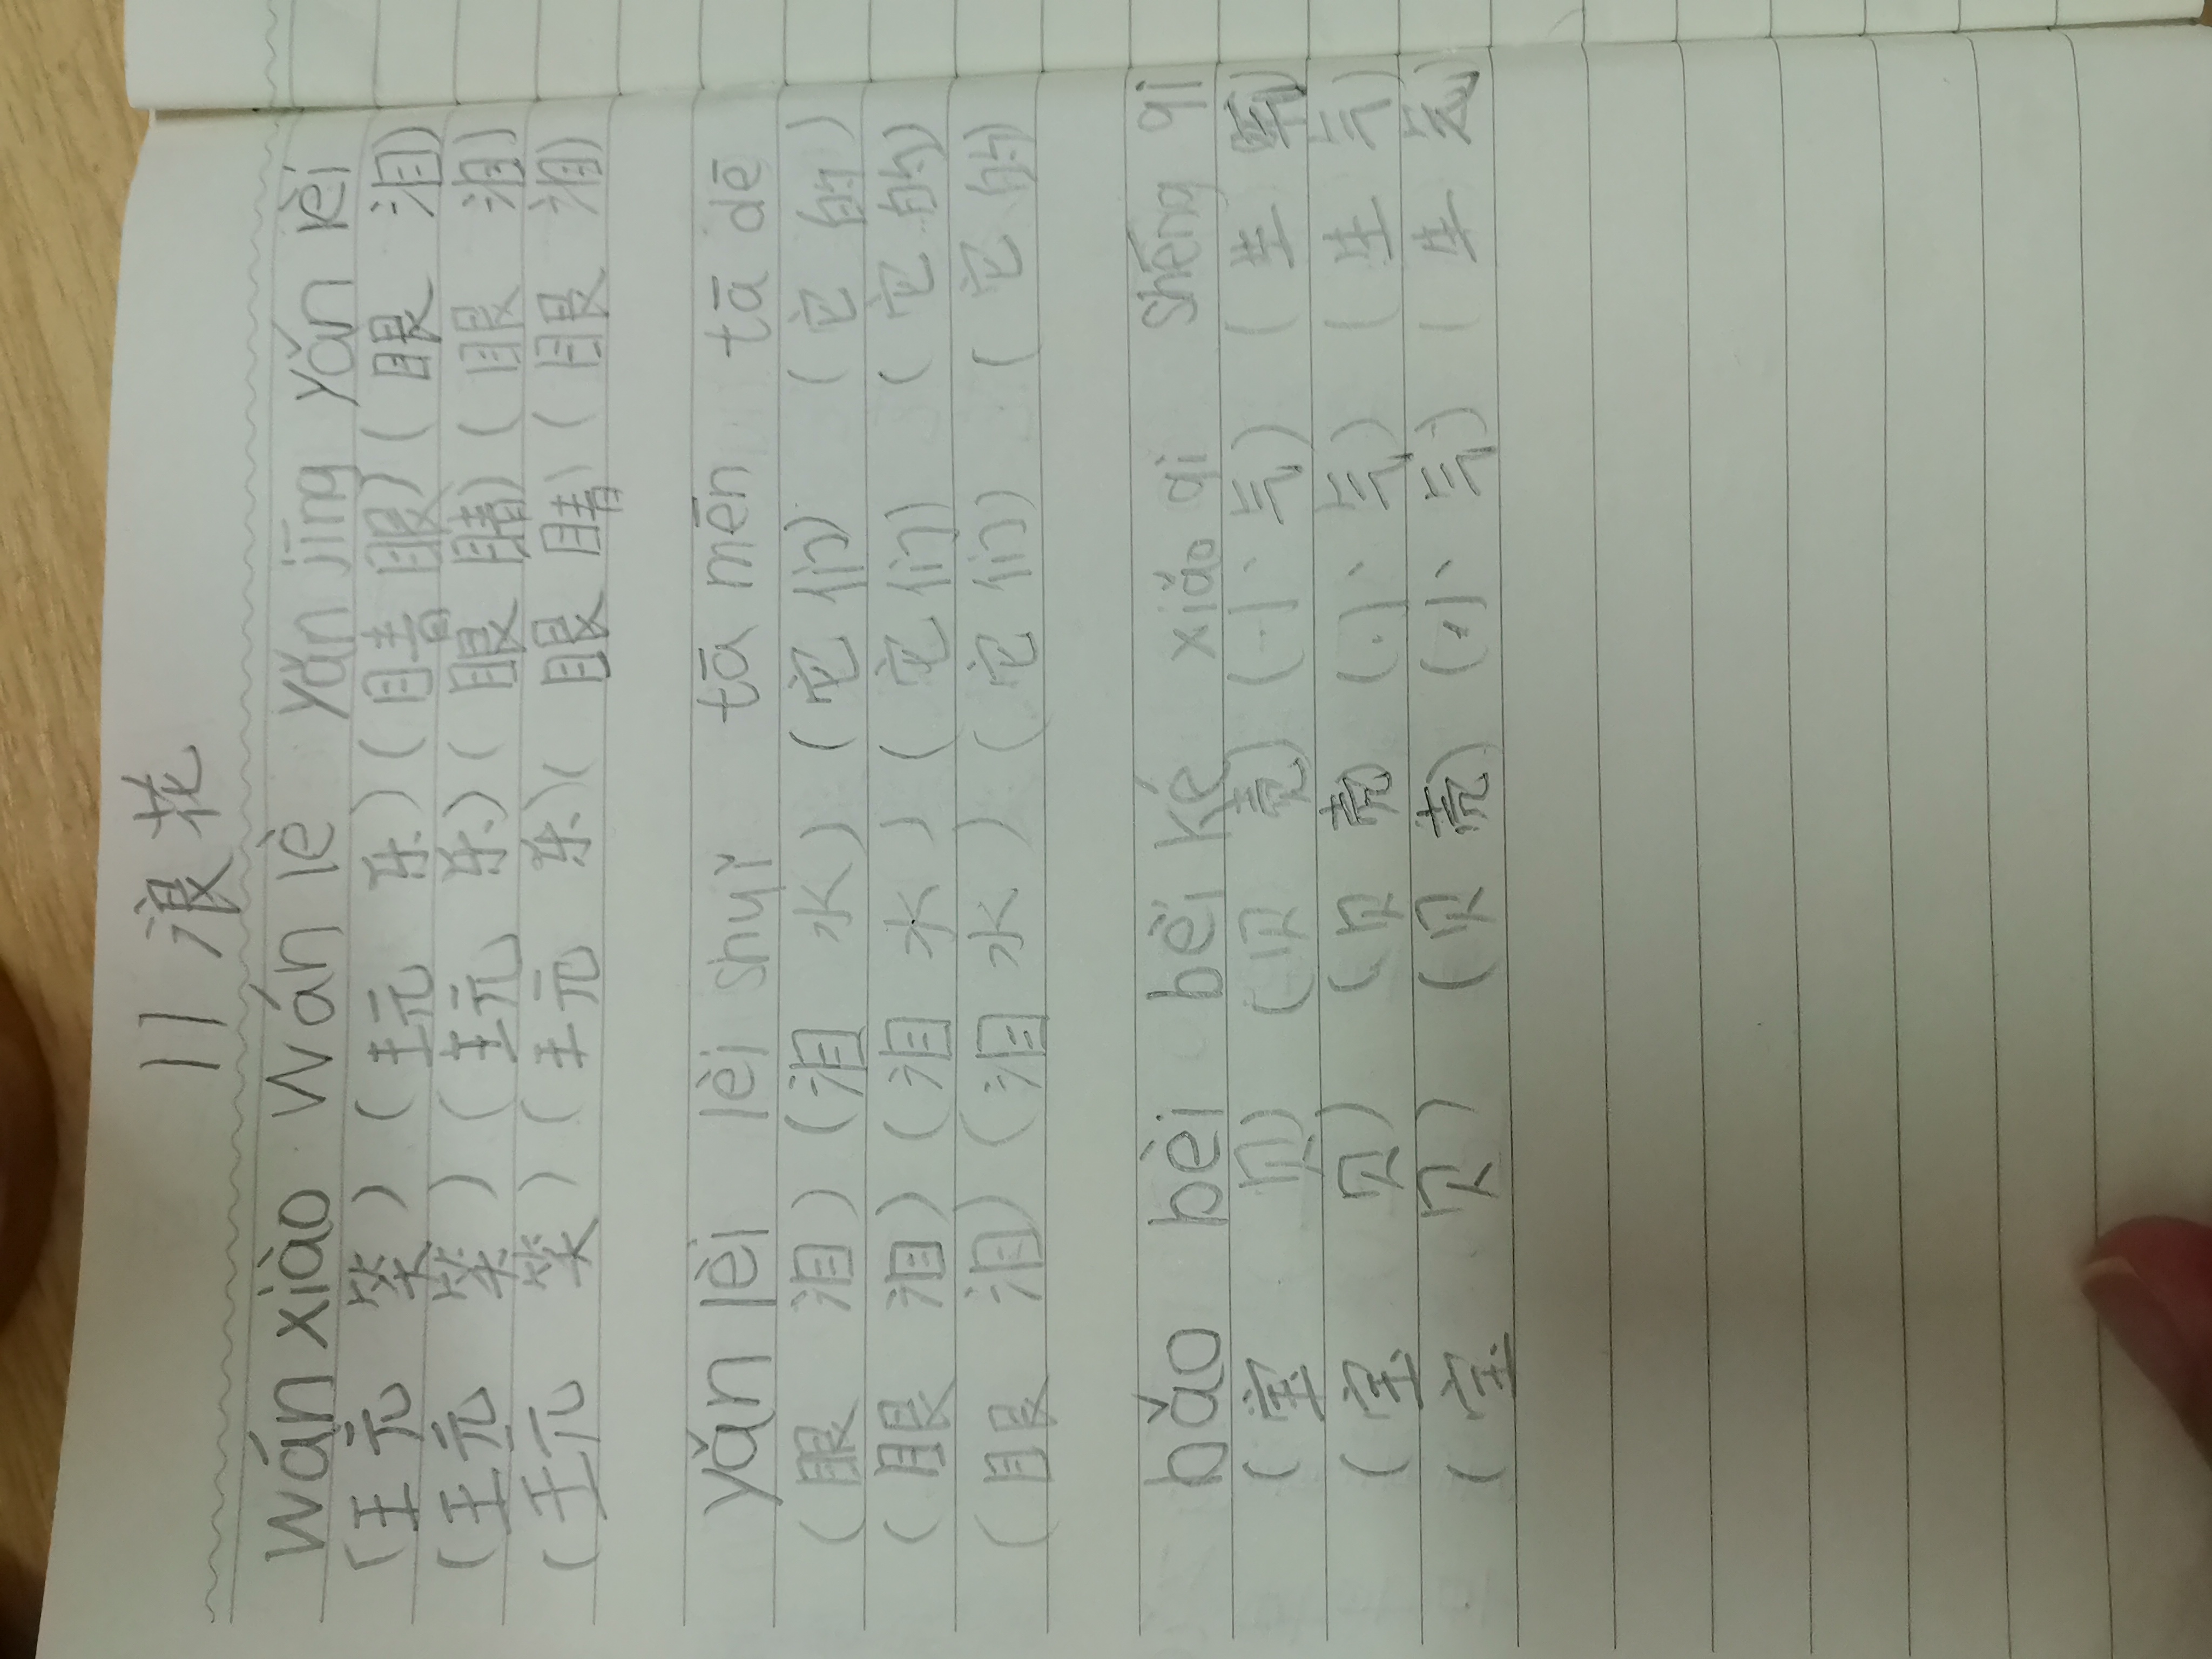 11 浪花
wán xiào wán lè yǎn jīng yǎn lèi
(玩 笑) (玩 乐) (睛 眼) (眼 泪)
(玩 笑) (玩 乐) (眼 睛) (眼 泪)
(玩 笑) (玩 乐) (眼 睛) (眼 泪)
yǎn lèi lèi shuǐ tā mēn tā dē
(眼 泪) (泪 水) (它 们) (它 的)
(眼 泪) (泪 水) (它 们) (它 的)
(眼 泪) (泪 水) (它 们) (它 的)
bǎo bèi bèi Ké xiǎo qì shēng qì
(宝 贝) (贝 壳) (小 气) (生 气)
(宝 贝) (贝 壳) (小 气) (生 气)
(宝 贝) (贝 壳) (小 气) (生 气)